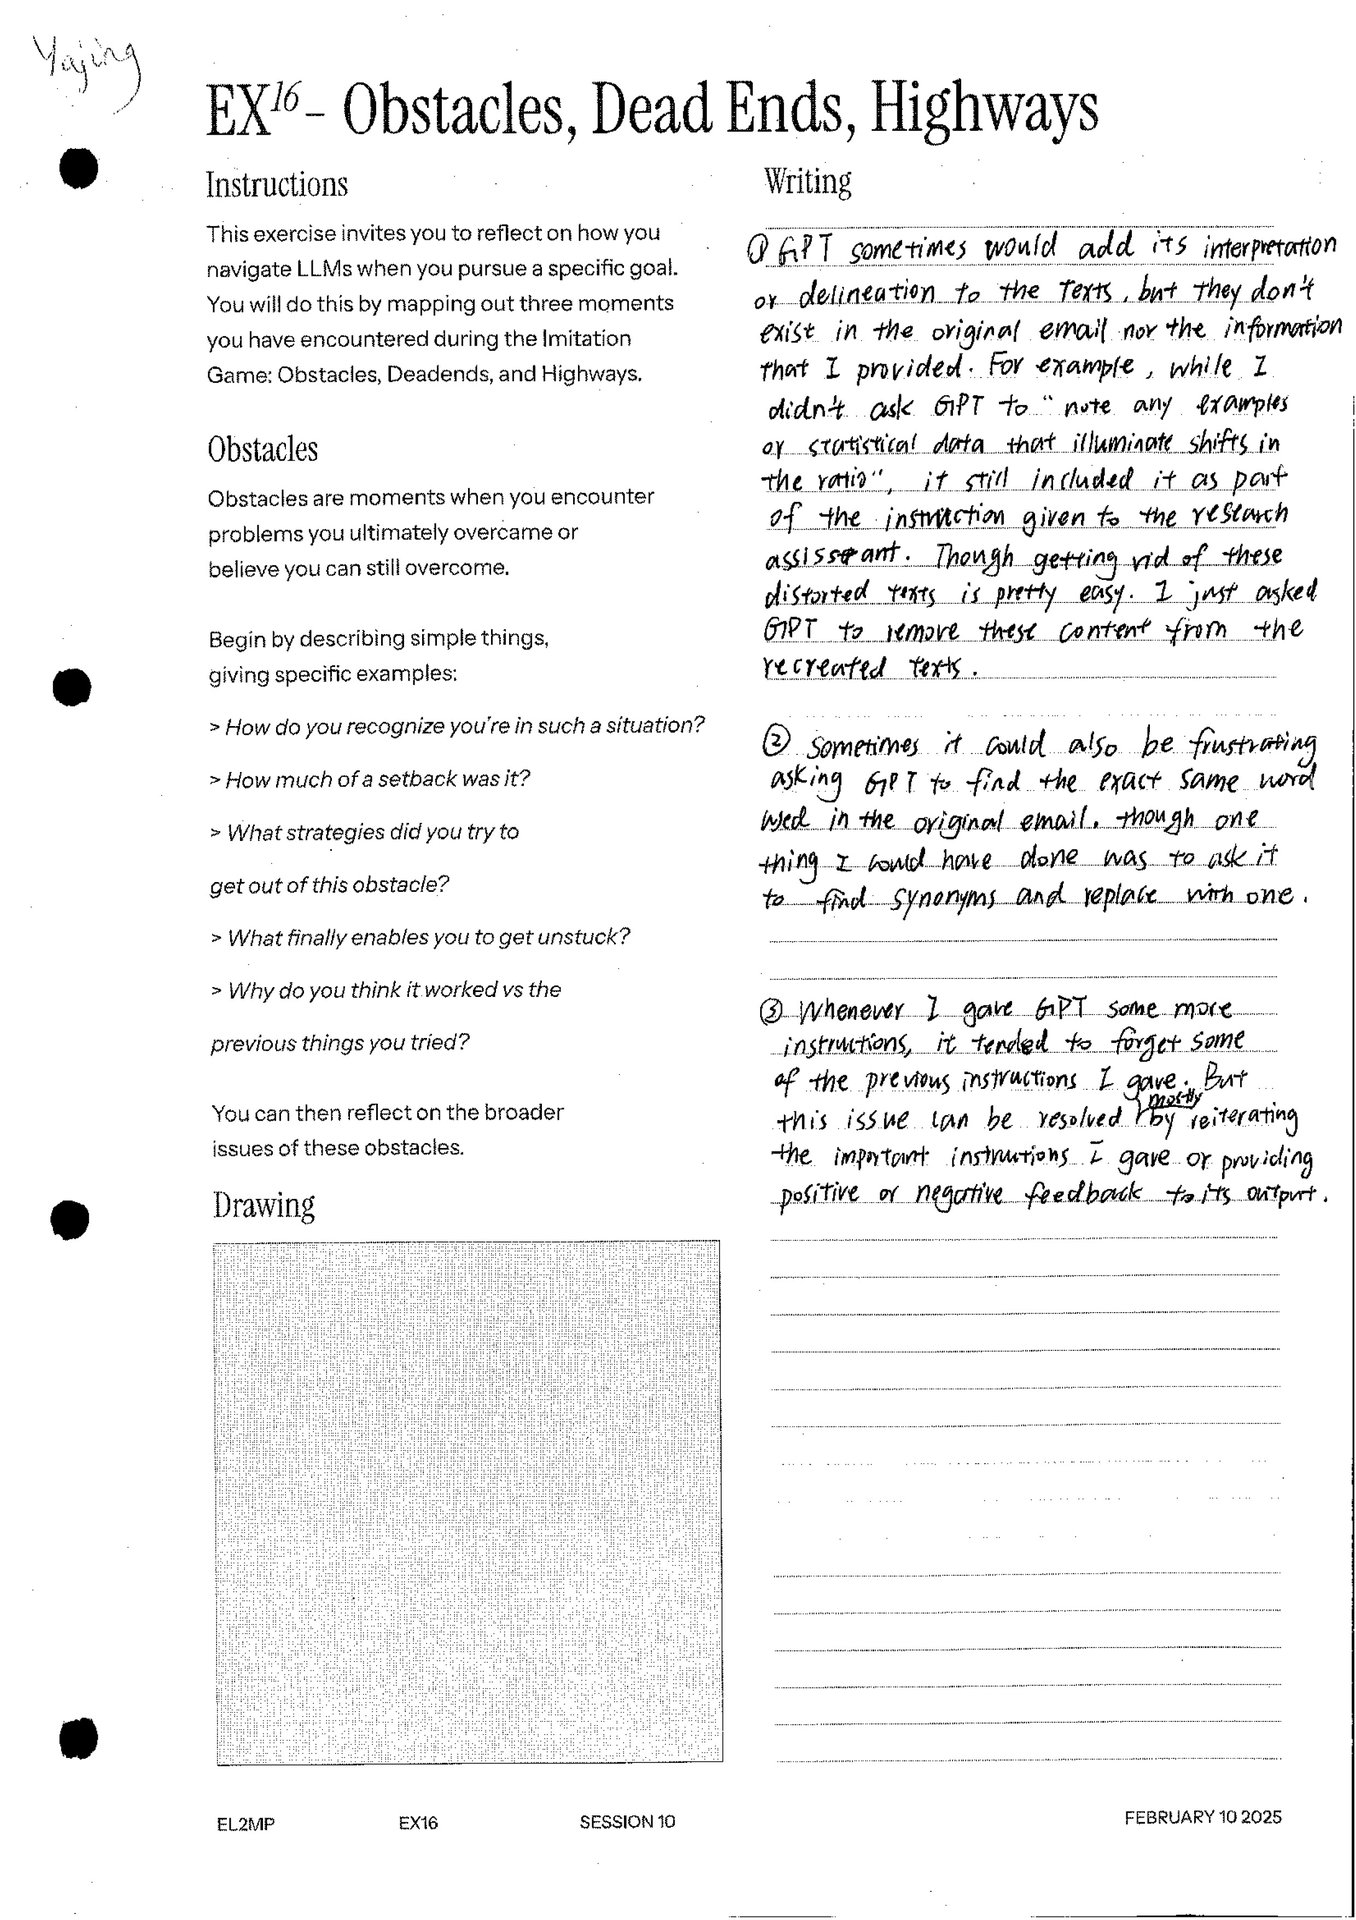 Yajing
EX16 - Obstacles, Dead Ends, Highways
Instructions
This exercise invites you to reflect on how you
navigate LLMs when you pursue a specific goal.
You will do this by mapping out three moments
you have encountered during the Imitation
Game: Obstacles, Deadends, and Highways.
Obstacles
Obstacles are moments when you encounter
problems you ultimately overcame or
believe you can still overcome.
Begin by describing simple things,
giving specific examples:
> How do you recognize you're in such a situation?
> How much of a setback was it?
> What strategies did you try to
get out of this obstacle?
> What finally enables you to get unstuck?
> Why do you think it worked vs the
previous things you tried?
You can then reflect on the broader
issues of these obstacles.
Drawing
Writing
① GPT sometimes would add its interpretation
or delineation to the texts, but they don't
exist in the original email nor the information
that I provided. For example, while I
didn't ask GPT to "note any examples
or statistical data that illuminate shifts in
the ratio", it still included it as part
of the instruction given to the research
assisstant. Though getting rid of these
distorted texts is pretty easy. I just asked
GPT to remove these content from the
recreated texts.
② Sometimes it could also be frustrating
asking GPT to find the exact same word
used in the original email. though one
thing I could have done was to ask it
to find synonyms and replace with one.
③ Whenever I gave GPT some more
instructions, it tended to forget some
of the previous instructions I gave. But
this issue can be resolved mostly by reiterating
the important instructions I gave or providing
positive or negative feedback to its output.
EL2MP EX16 SESSION 10 FEBRUARY 10 2025